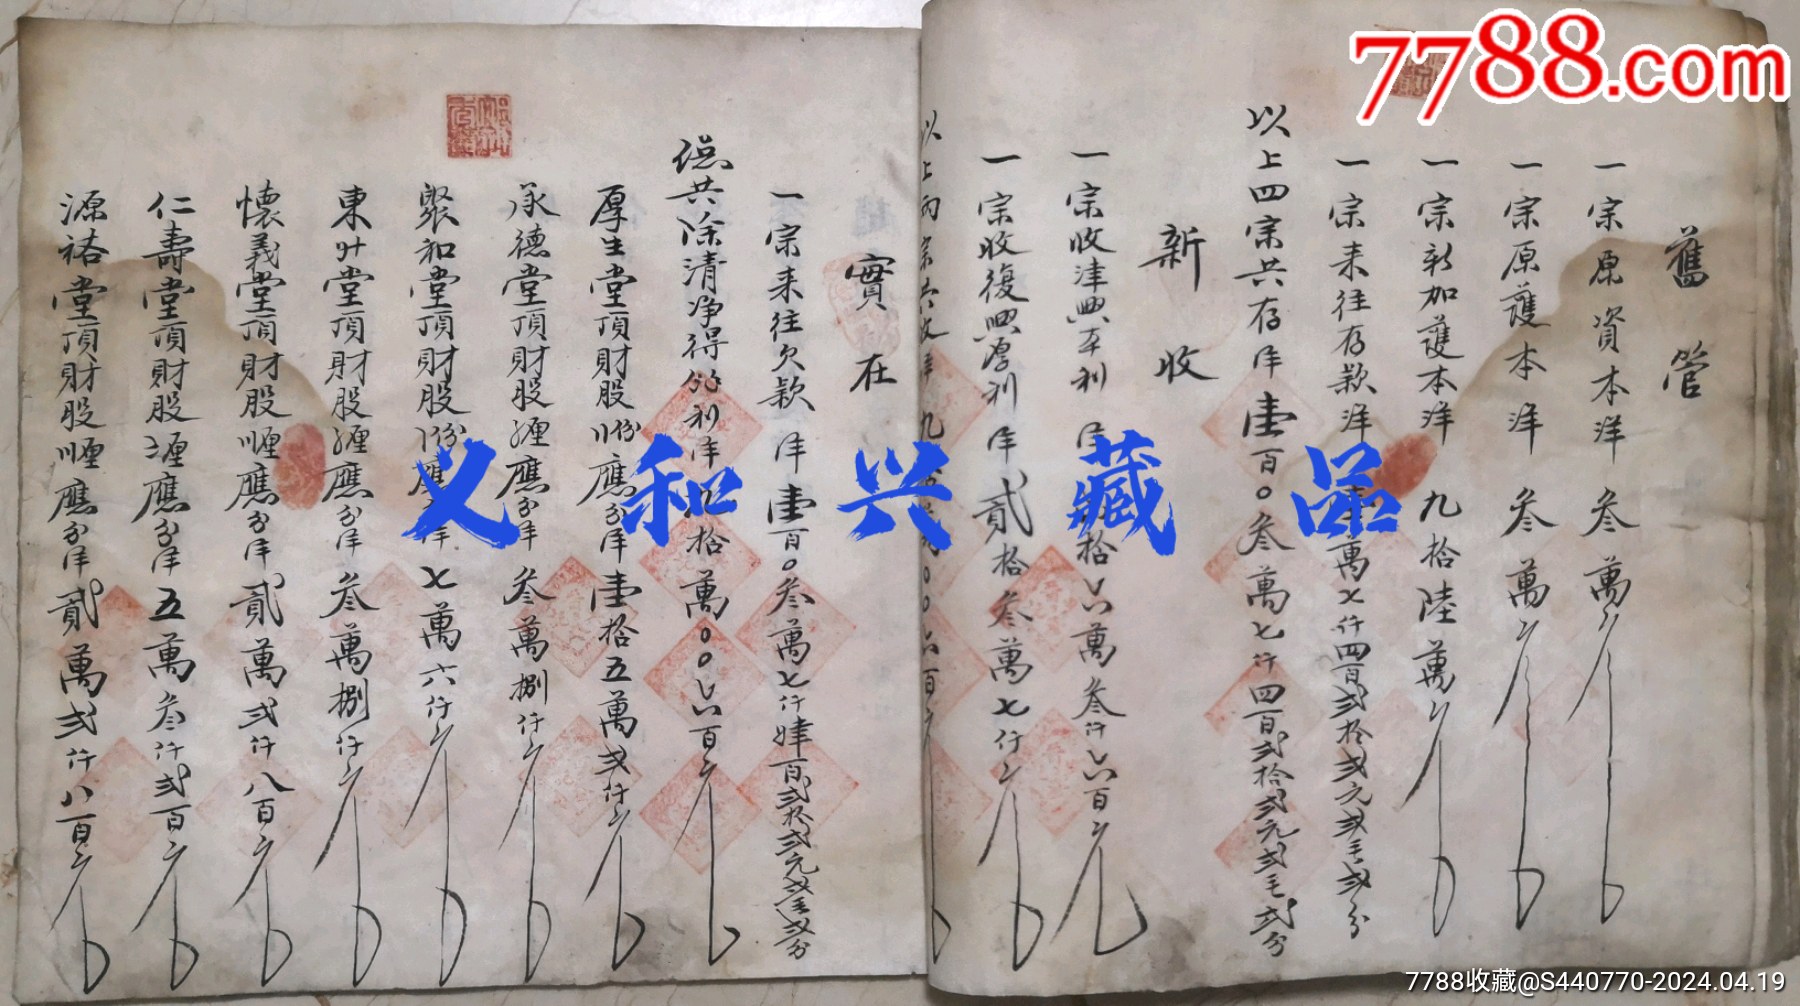 7788.com
舊管
一宗原資本洋叁萬元
一宗原護本洋叁萬元
一宗新加護本洋九拾陸萬元
一宗来往存款洋萬七仟四百弍拾弍元弍毛弍分
以上四宗共存洋壹百〇叁萬七仟四百弍拾弍元弍毛弍分
新收
一宗收津興本利洋拾六萬叁仟六百元
一宗收復興厚利洋貳拾叁萬七仟元
以上两宗共收洋九〇〇六百元
實在
一宗来往欠款洋壹百〇叁萬七仟肆百弍拾弍元弍毛弍分
總共除清净得餘利洋拾萬〇〇六百元
厚生堂頂財股份應分洋壹拾五萬弍仟元
承德堂頂財股應分洋叁萬捌仟元
聚和堂頂財股份應洋七萬六仟元
東升堂頂財股應分洋叁萬捌仟元
懷義堂頂財股應分洋貳萬弍仟八百元
仁壽堂頂財股應分洋五萬叁仟弍百元
源裕堂頂財股應分洋貳萬弍仟八百元
义和兴藏品
7788收藏@S440770-2024.04.19